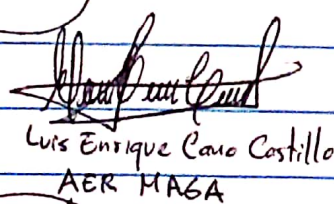 Luis Enrique Cano Castillo
AER MAGA